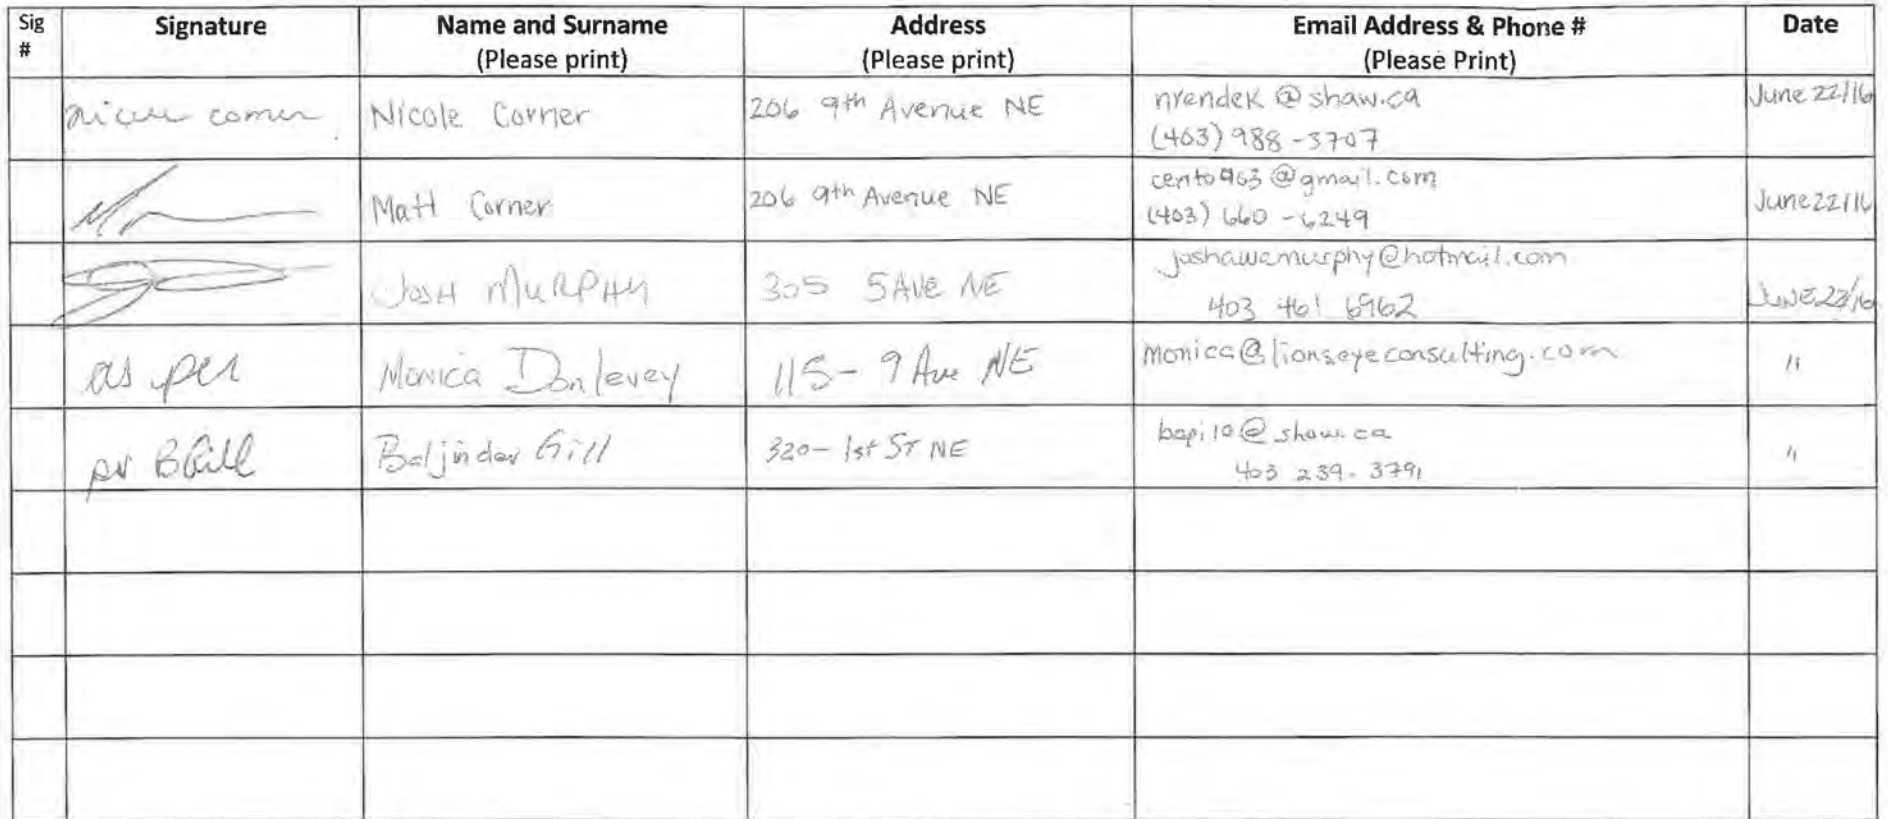 Sig
#
Signature
Name and Surname
(Please print)
Address
(Please print)
Email Address & Phone #
(Please Print)
Date
Nicole Corner
206 9th Avenue NE
nrendek@shaw.ca
(403) 988-3707
June 22/16
Matt Corner
206 9th Avenue NE
cento963@gmail.com
(403) 660-6249
June 22/16
JOSH MURPHY
305 5 AVE NE
joshawamurphy@hotmail.com
403 461 6962
JUNE 22/16
as per
Monica Donlevey
115-9 Ave NE
monica@lionseyeconsulting.com
"
pr BGill
Baljinder Gill
320-1st ST NE
bapi10@shaw.ca
403 239-3791
"